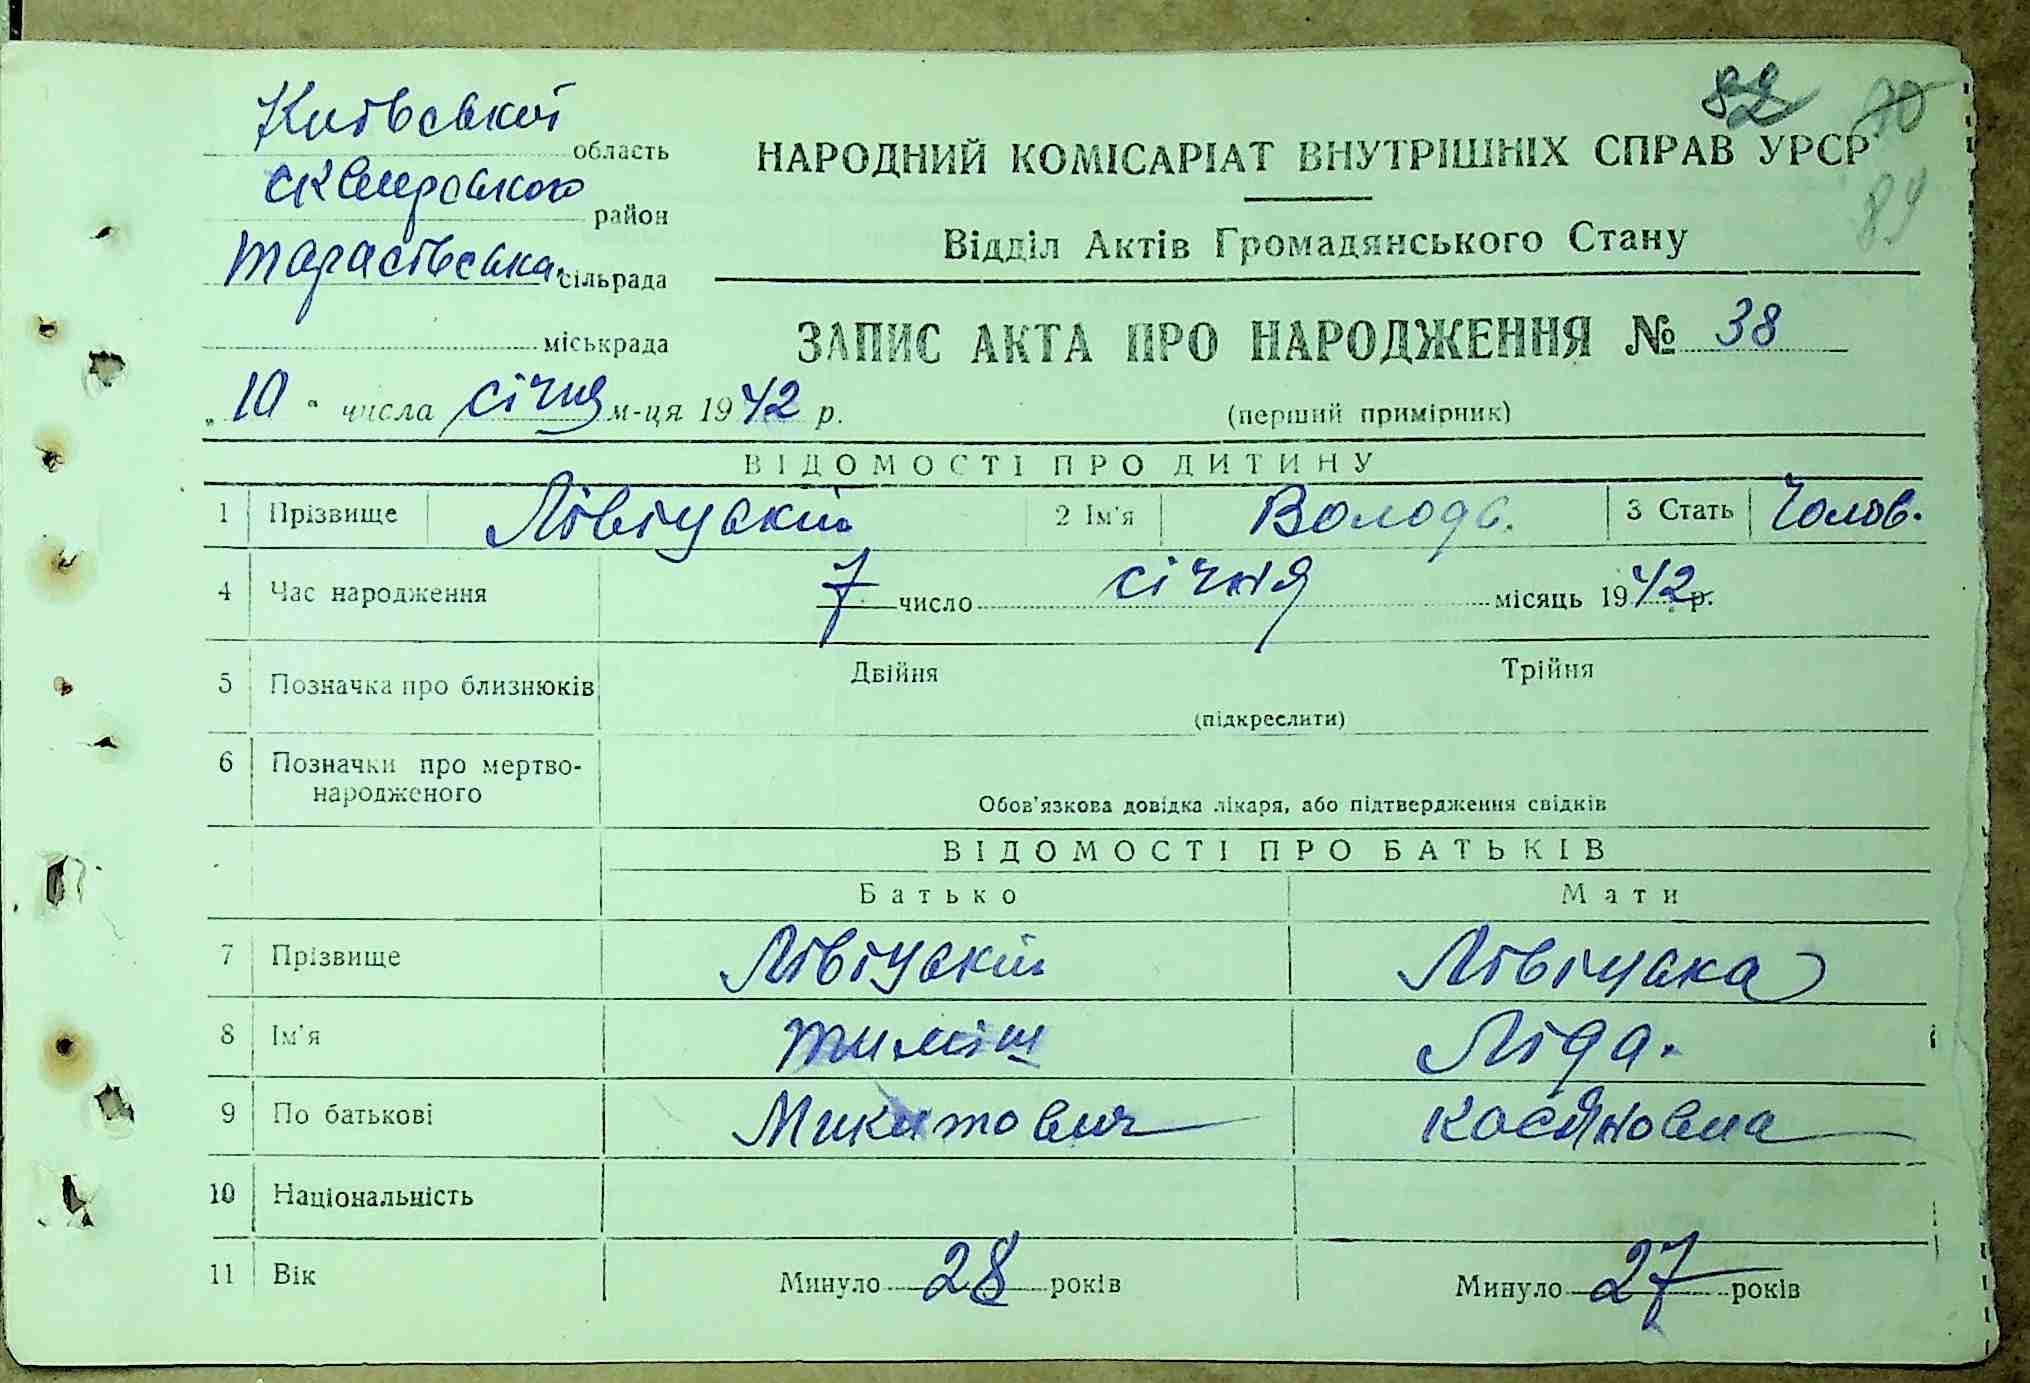 82 70
89
Київській область
Сквирського район
Тарасівська сільрада
міськрада
НАРОДНИЙ КОМІСАРІАТ ВНУТРІШНІХ СПРАВ УРСР
Відділ Актів Громадянського Стану
ЗАПИС АКТА ПРО НАРОДЖЕННЯ № 38
„10“ числа січня м-ця 1942 р.
(перший примірник)
ВІДОМОСТІ ПРО ДИТИНУ
1 Прізвище Лівіцькій 2 Ім'я Володь. 3 Стать Чолов.
4 Час народження 7 число січня місяць 1942 р.
5 Позначка про близнюків Двійня Трійня
(підкреслити)
6 Позначки про мертво-
народженого
Обов'язкова довідка лікаря, або підтвердження свідків
ВІДОМОСТІ ПРО БАТЬКІВ
Батько Мати
7 Прізвище Лівіцькій Лівіцька
8 Ім'я Тиміш Ліда.
9 По батькові Микитович Касяновна
10 Національність
11 Вік Минуло 28 років Минуло 27 років